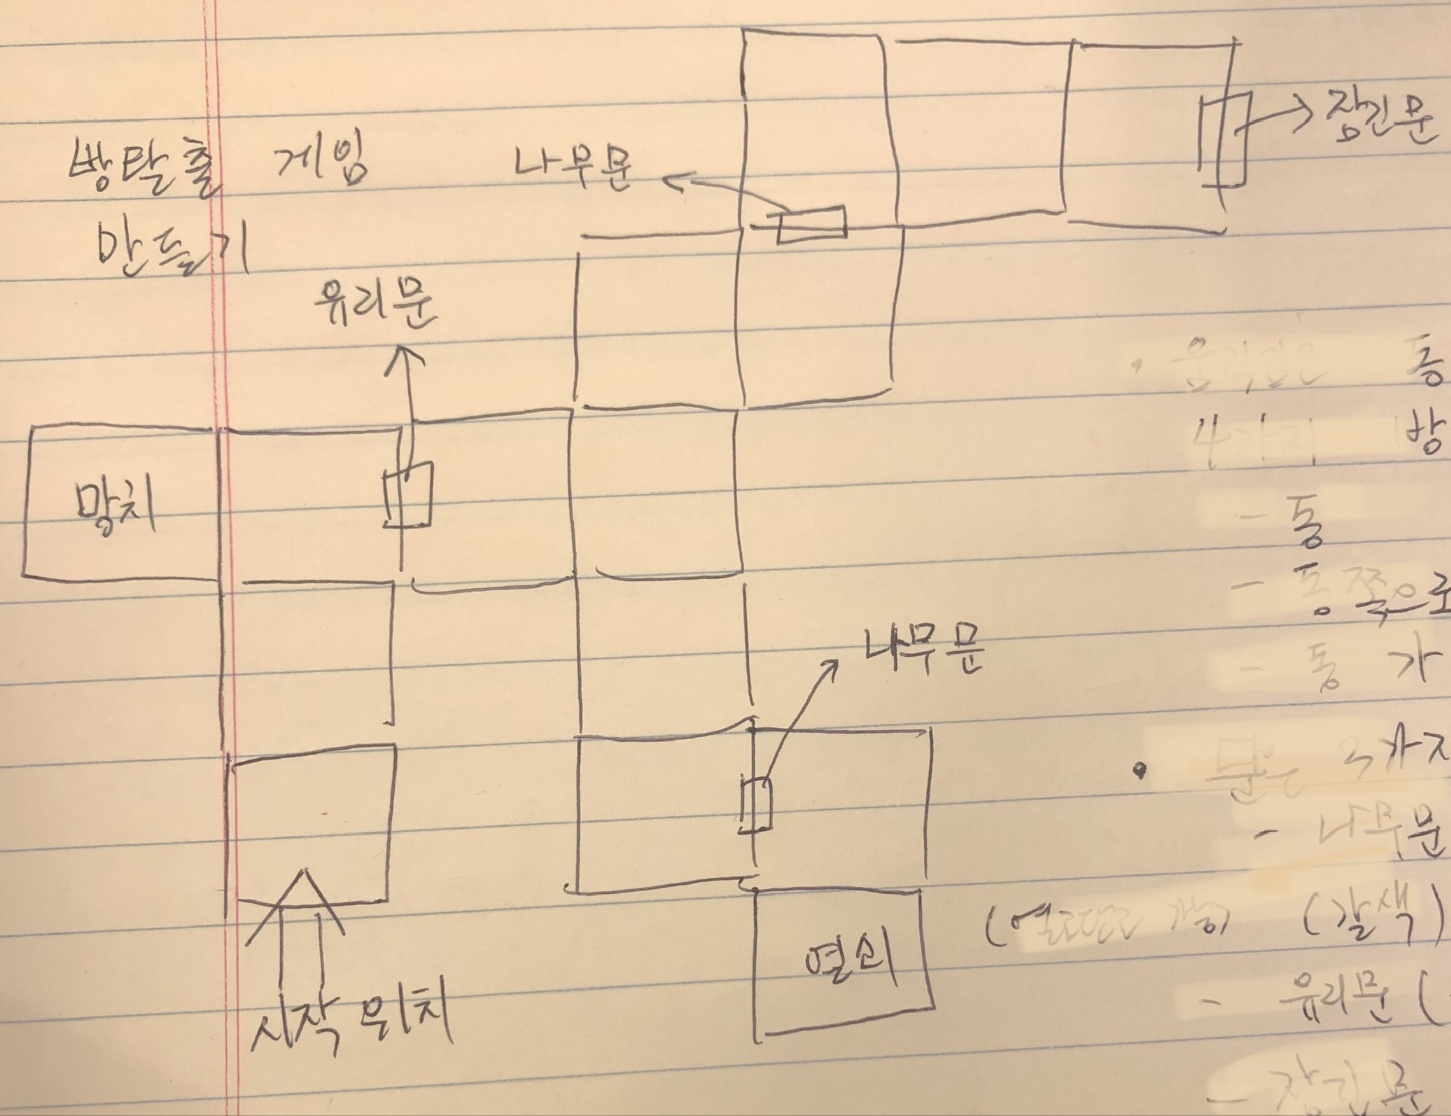 방탈출 게임
만들기
나무문
잠긴문
유리문
망치
나무문
열쇠
시작 위치
동
4가지 방
- 동
- 동쪽으로
- 동 가
3가지
- 나무문
(갈색)
- 유리문 (